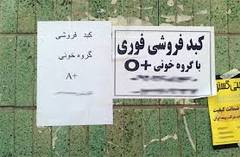 کبد فروشی
گروه خونی
A+
کبد فروشی فوری
با گروه خونی +O